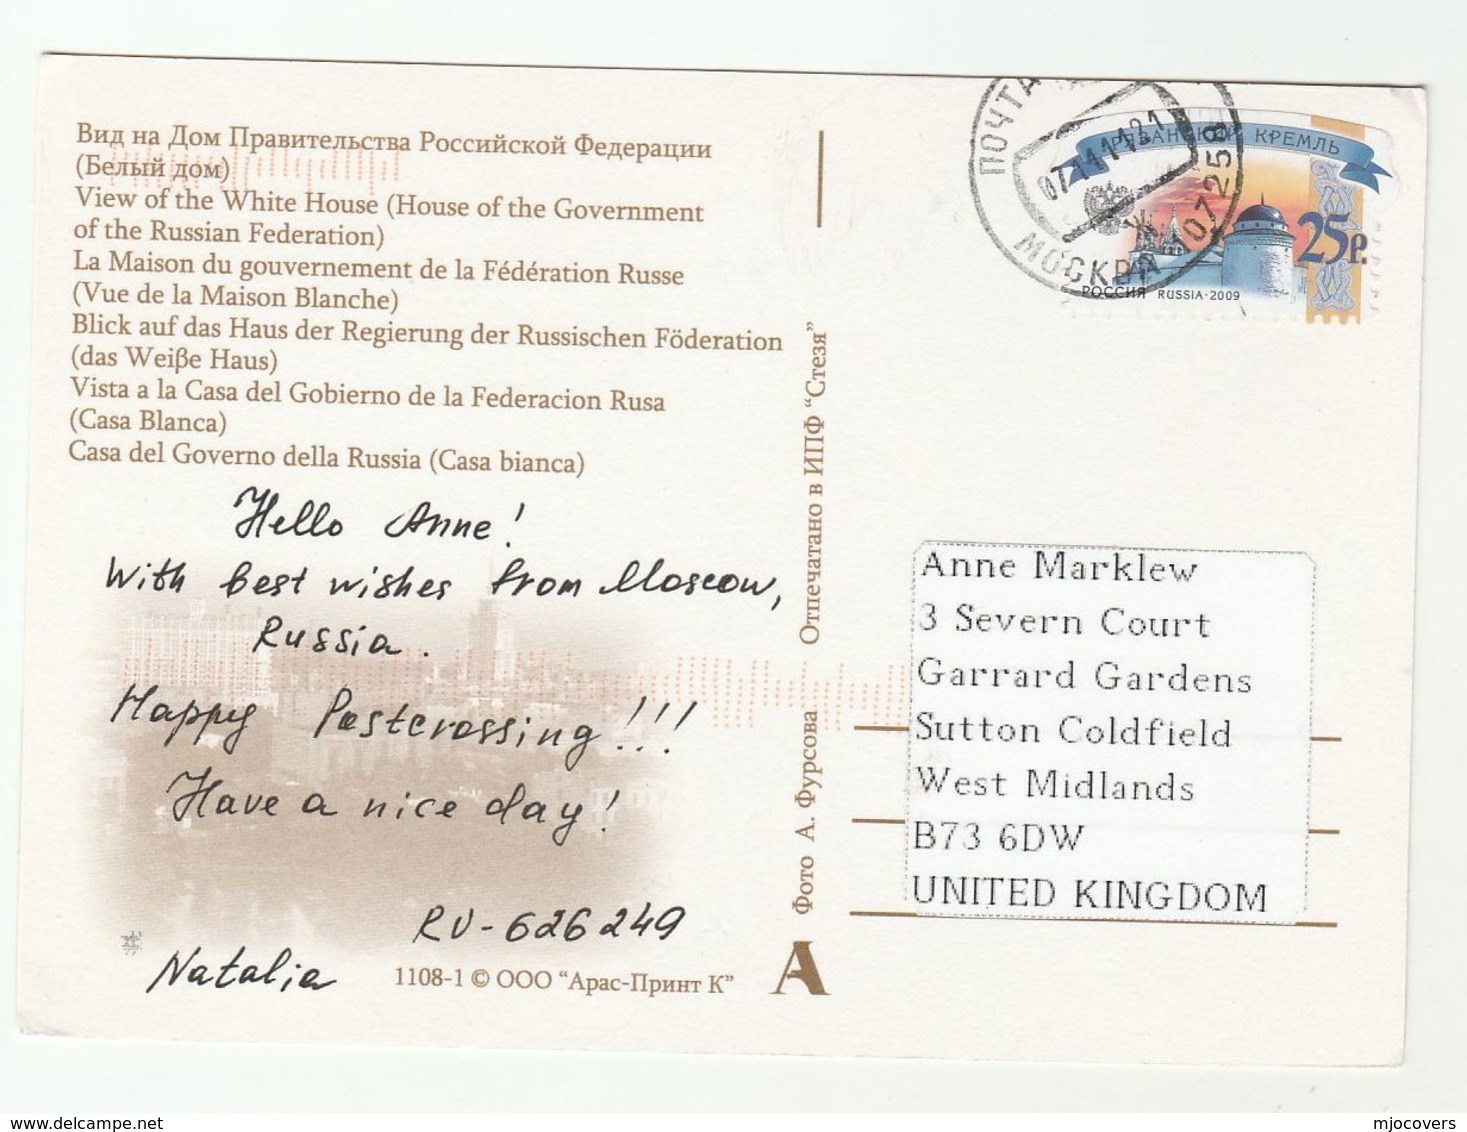 Вид на Дом Правительства Российской Федерации
(Белый дом)
View of the White House (House of the Government
of the Russian Federation)
La Maison du gouvernement de la Fédération Russe
(Vue de la Maison Blanche)
Blick auf das Haus der Regierung der Russischen Föderation
(das Weiβe Haus)
Vista a la Casa del Gobierno de la Federacion Rusa
(Casa Blanca)
Casa del Governo della Russia (Casa bianca)
Hello Anne!
With best wishes from Moscow,
Russia.
Happy Postcrossing!!!
Have a nice day!
RU-626249
Natalia
1108-1 © ООО "Арас-Принт К"
Фото А. Фурсова Отпечатано в ИПФ "Стезя"
А
ПОЧТА
МОСКВА 107258
КРЕМЛЬ
25р.
РОССИЯ RUSSIA·2009
Anne Marklew
3 Severn Court
Garrard Gardens
Sutton Coldfield
West Midlands
B73 6DW
UNITED KINGDOM
mjocovers